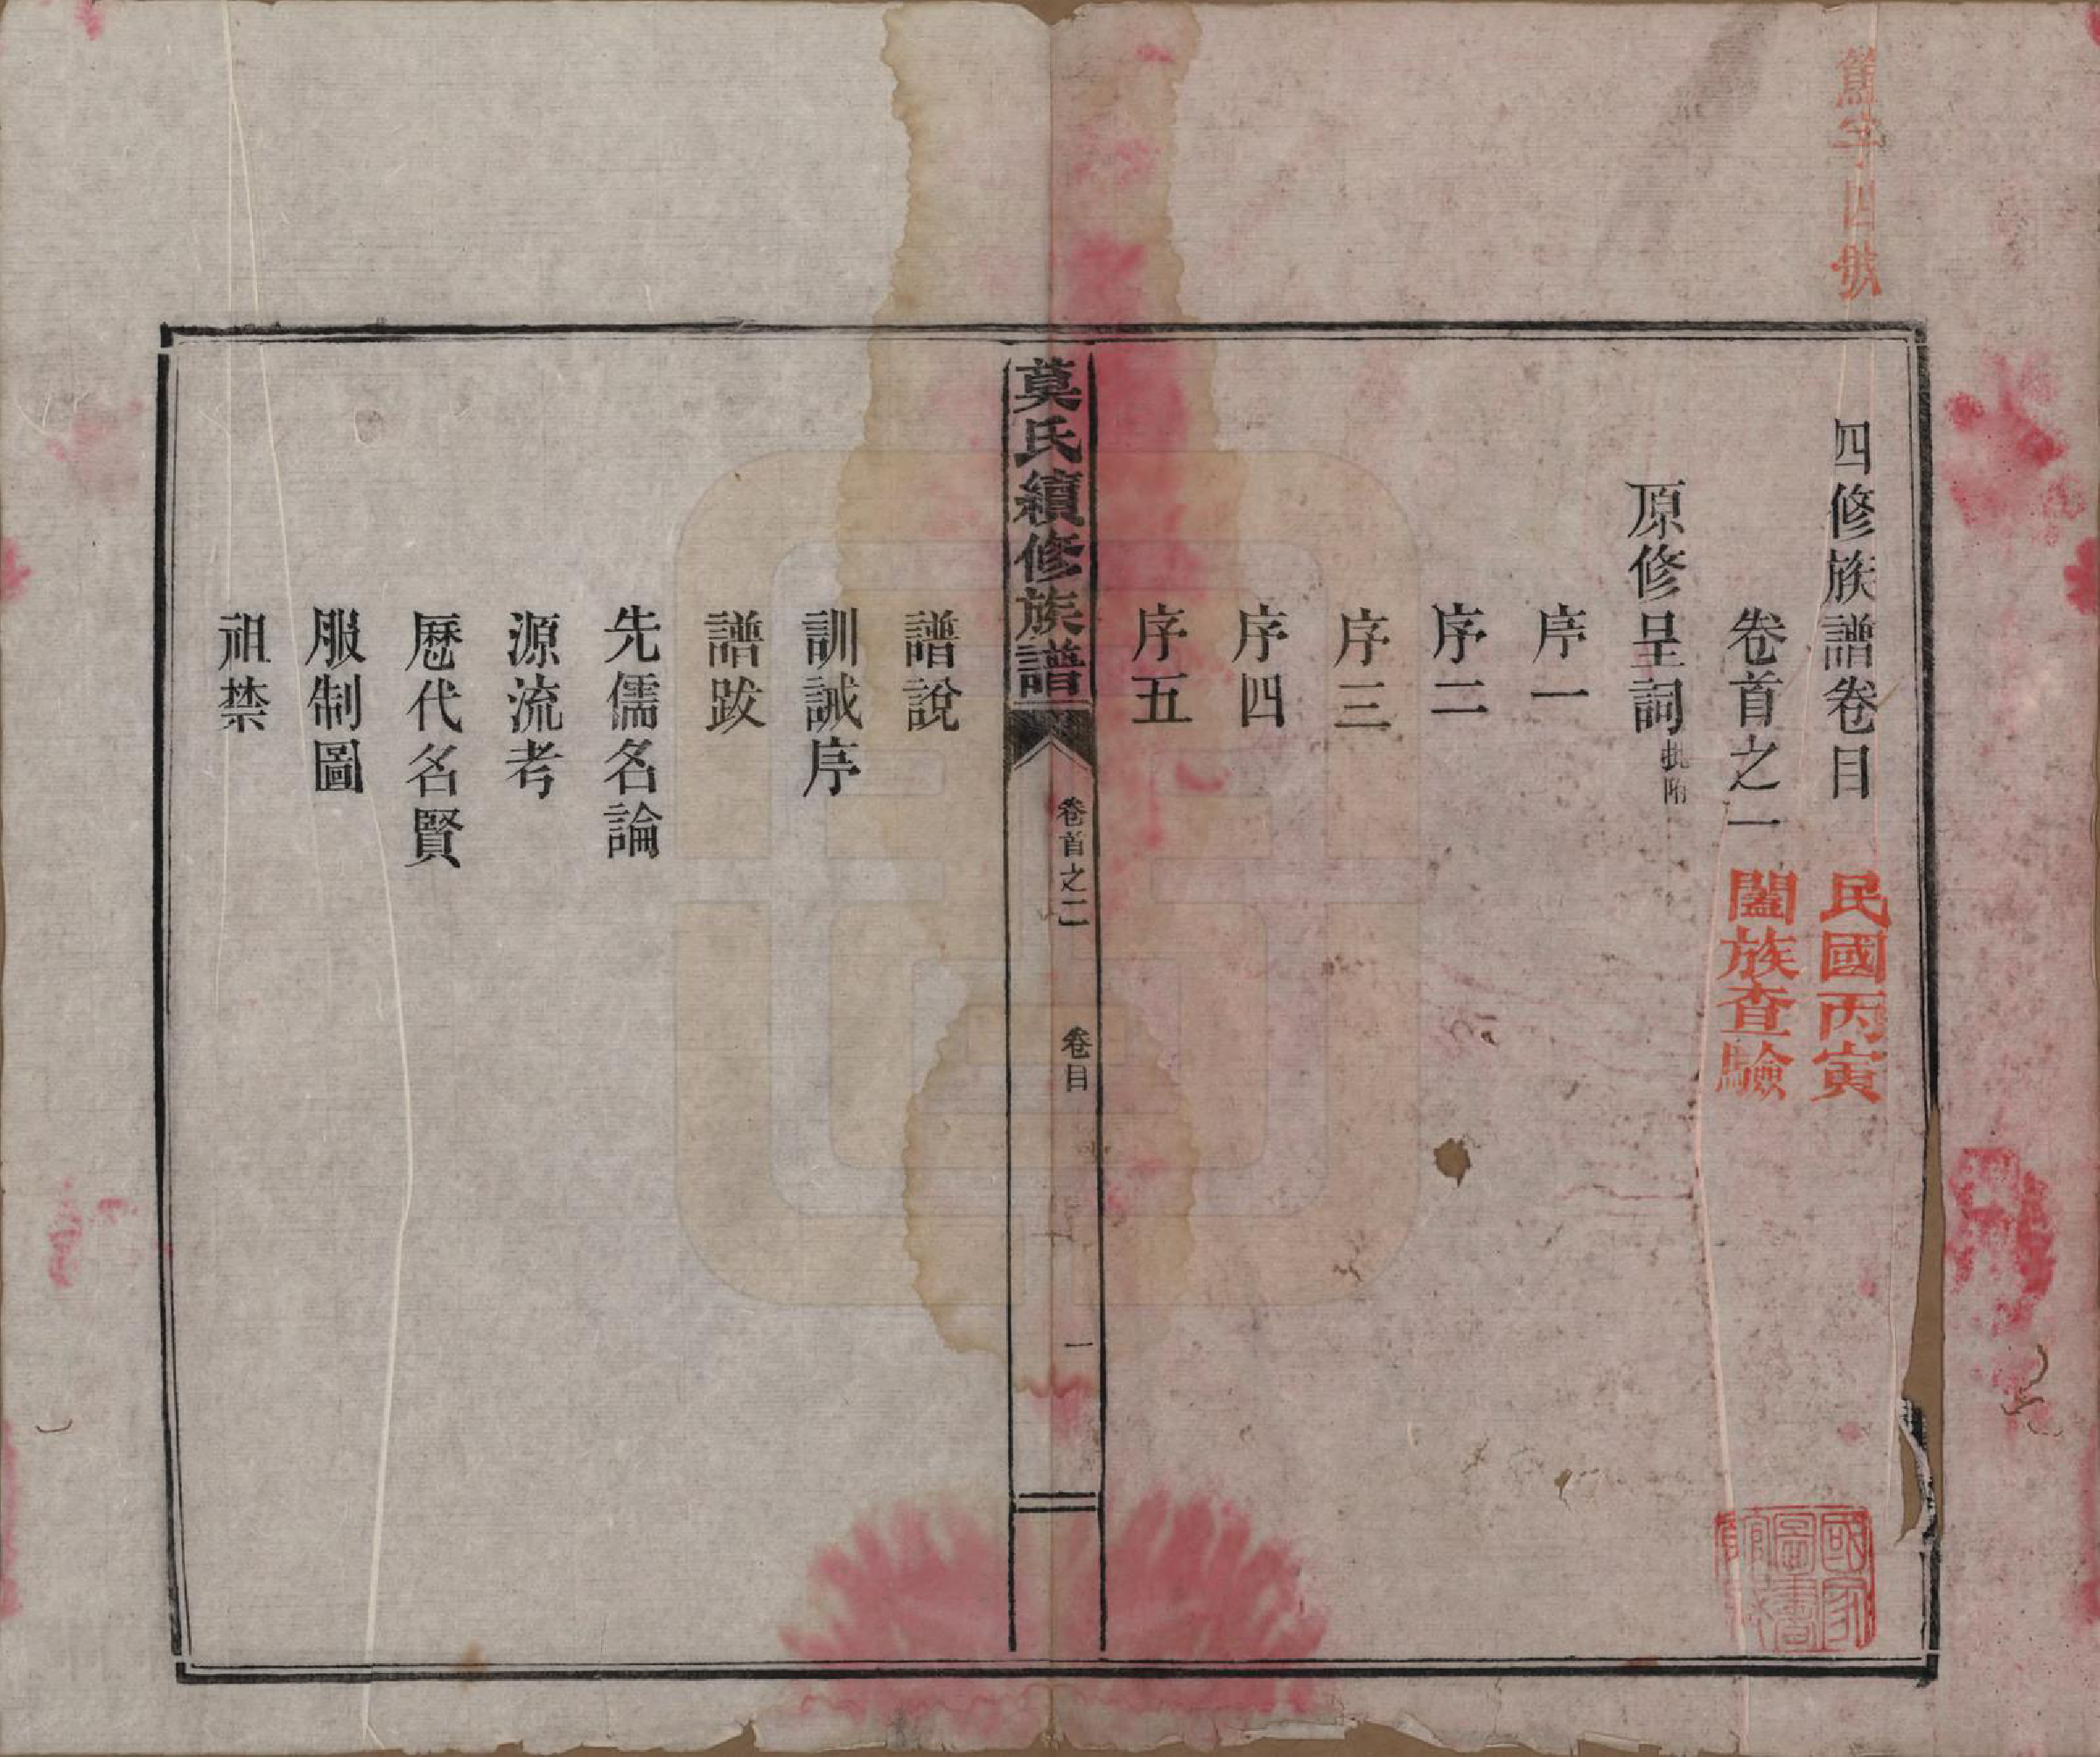 四修族譜卷目
民國丙寅
卷首之一
闔族查驗
原修呈詞批附
序一
序二
序三
序四
序五
莫氏續修族譜
卷首之二
卷目
一
譜說
訓誡序
譜跋
先儒名論
源流考
歷代名賢
服制圖
祖禁
字四號
國家
圖書